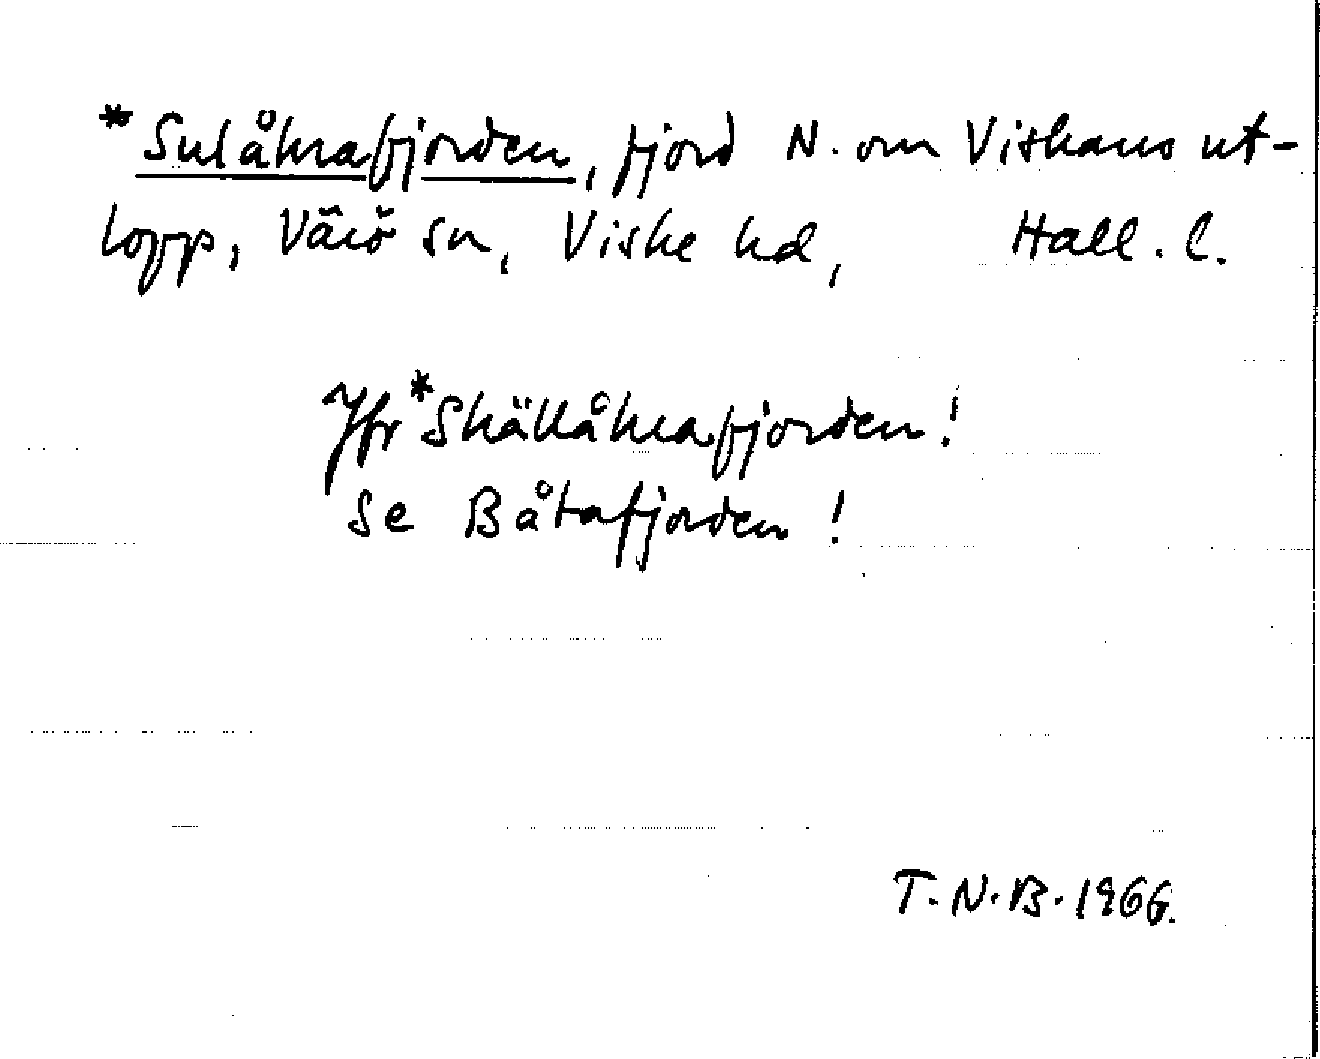 *Sulåkrafjorden, fjord N. om Viskans ut-
lopp, Värö sn, Viske hd, Hall. l.
Jfr *Skällåkrafjorden!
Se Båtafjorden!
T.N.B. 1966.